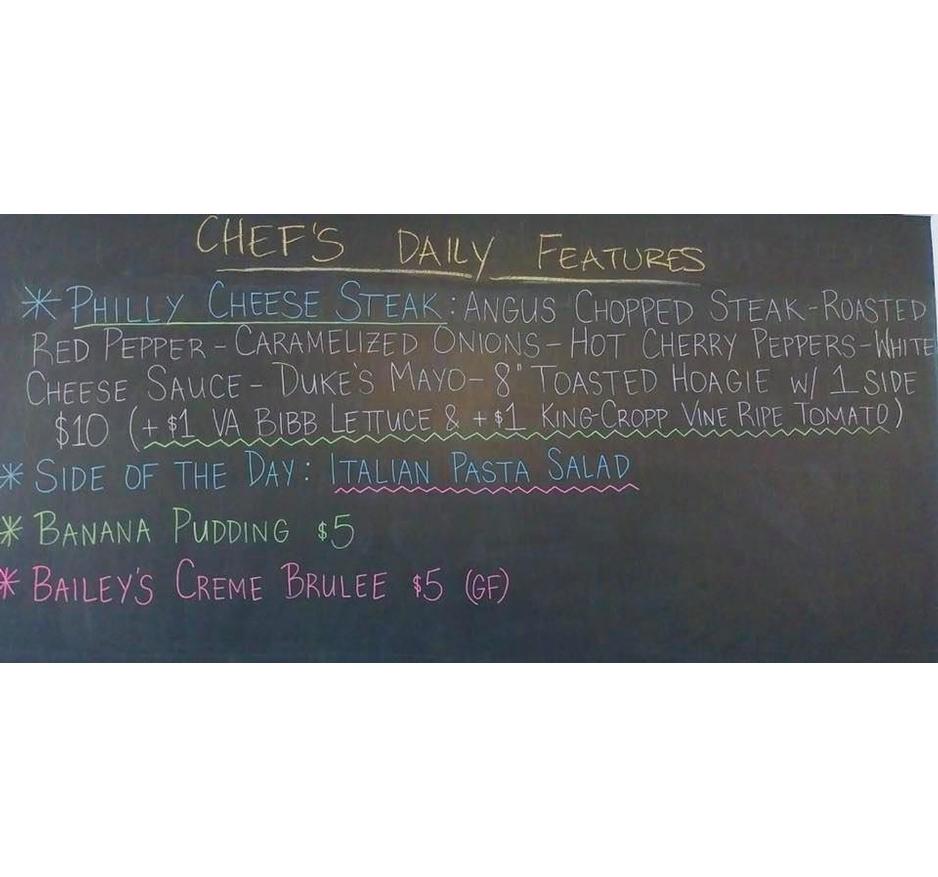 CHEF'S DAILY FEATURES
* PHILLY CHEESE STEAK: ANGUS CHOPPED STEAK-ROASTED
RED PEPPER-CARAMELIZED ONIONS-HOT CHERRY PEPPERS-WHITE
CHEESE SAUCE-DUKE'S MAYO-8" TOASTED HOAGIE W/ 1 SIDE
$10 (+$1 VA BIBB LETTUCE & +$1 KING-CROPP VINE RIPE TOMATO)
* SIDE OF THE DAY: ITALIAN PASTA SALAD
* BANANA PUDDING $5
* BAILEY'S CREME BRULEE $5 (GF)